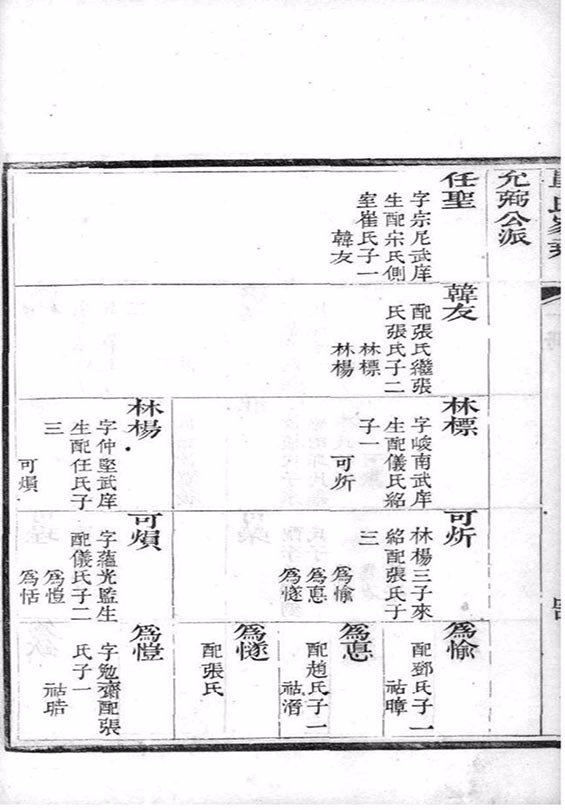 允弼公派
任聖
字宗尼武庠
生配宋氏側
室崔氏子一
韓友
韓友
配張氏繼張
氏張氏子二
林標
林楊
林標
字峻南武庠
生配儀氏紹
子一
可炘
林楊
字仲堅武庠
生配任氏子
三
可熉
可炘
林楊三子來
紹配張氏子
三
為愉
為惪
為㥞
可熉
字蘊光監生
配儀氏子二
為愷
為恬
為愉
配鄧氏子一
祜暲
為惪
配趙氏子一
為㥞
配張氏
為愷
字勉齋配張
氏子一